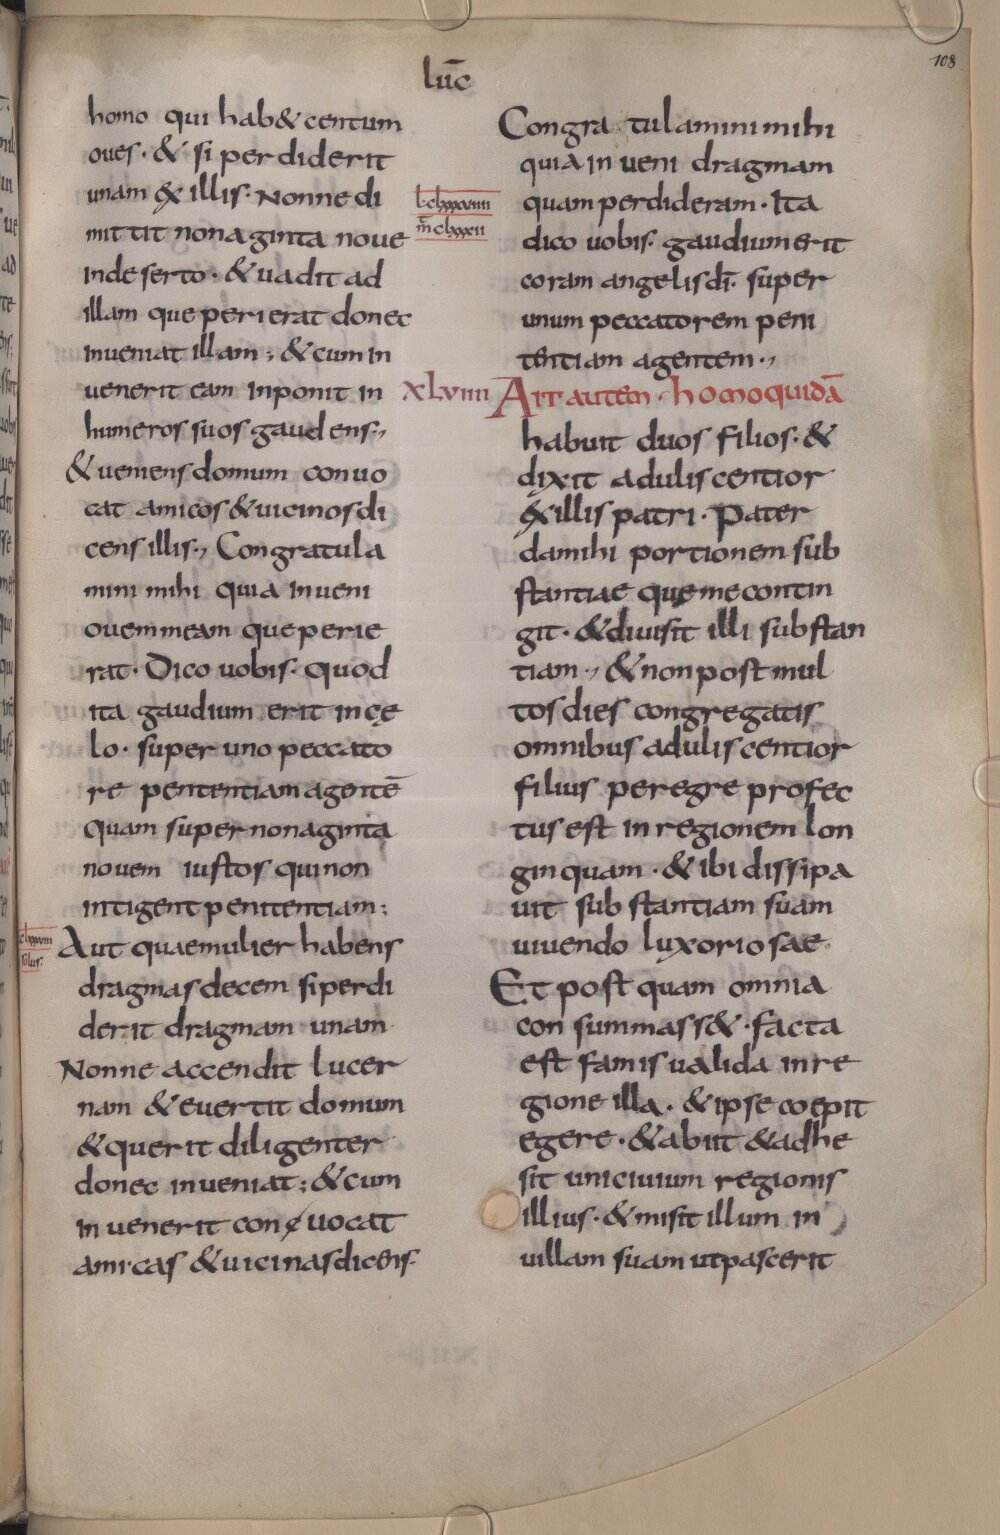 108
lūc
homo qui hab& centum
oues· & si perdiderit
unam ex illis· Nonne di
mittit nonaginta noue
indeserto· & uadit ad
illam que perierat donec
inueniat illam; & cum in
uenerit eam inponit in
humeros suos gaudens·,
& ueniens domum conuo
cat amicos & uicinos di
cens illis·, Congratula
mini mihi quia inueni
ouem meam que perie
rat· Dico uobis· quod
ita gaudium erit in cę
lo· super uno peccato
re pententiam agentē
quam super nonaginta
nouem iustos qui non
intigent penitentiam;
Aut quae mulier habens
dragmas decem si perdi
derit dragmam unam
Nonne accendit lucer
nam & euertit domum
& querit diligenter
donec inueniat; & cum
inuenerit conuocat
amicas & uicinas dicens·
l·clxxxviiii
m̄ clxxxii
Congratulamini mihi
quia inueni dragmam
quam perdideram· Ita
dico uobis· gaudium erit
coram angelis dī· super
unum peccatorem peni
tentiam agentem·,
XLVIIII Ait autem· homo quidā
habuit duos filios· &
dixit aduliscentior
ex illis patri· Pater
da mihi portionem sub
stantiae que me contin
git· & diuisit illi substan
tiam·, & non post mul
tos dies congregatis
omnibus aduliscentior
filius peregre profec
tus est in regionem lon
ginquam· & ibi dissipa
uit substantiam suam
uiuendo luxoriosae·
Et postquam omnia
consummass&· facta
est famis ualida in re
gione illa· & ipse coepit
egere· & abiit & adhe
sit uni ciuium regionis
illius· & misit illum in
uillam suam ut pascerit